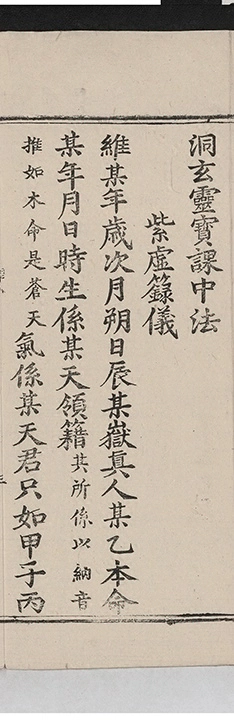 洞玄靈寶課中法
紫虛籙儀
維某年歲次月朔日辰某嶽真人某乙本命
某年月日時生係某天領籍其所係以納音
推如木命是蒼天氣係某天君只如甲子丙
三